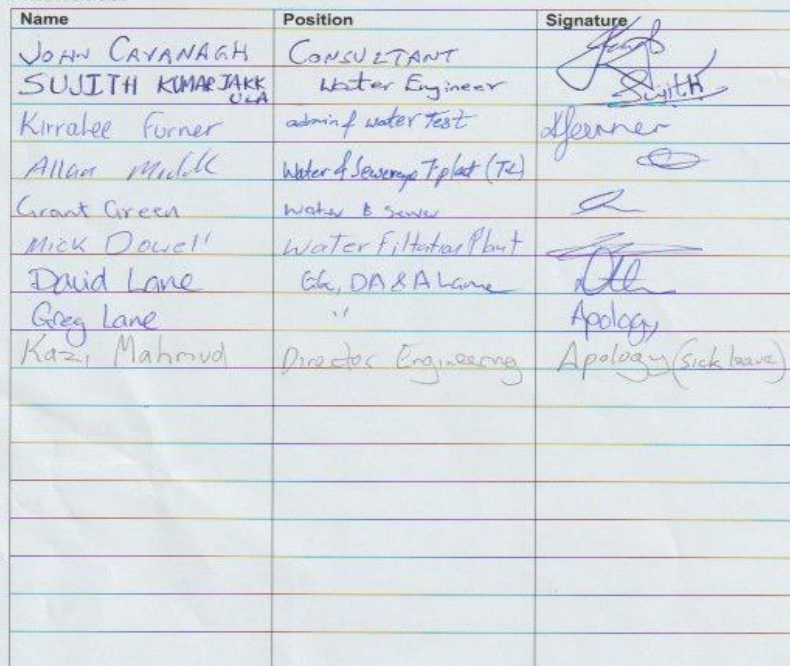 Name Position Signature
JOHN CAVANAGH CONSULTANT
SUJITH KUMAR JAKK Water Engineer Sujith
ULA
Kirralee Furner admin & water Test KFurner
Allan Water & Sewerage T-plant (TL)
Grant Green Water & Sewer
Mick Dowell Water Filtration Plant
David Lane DA & A Lane
Greg Lane " Apology
Kazi Mahmud Director Engineering Apology (sick leave)